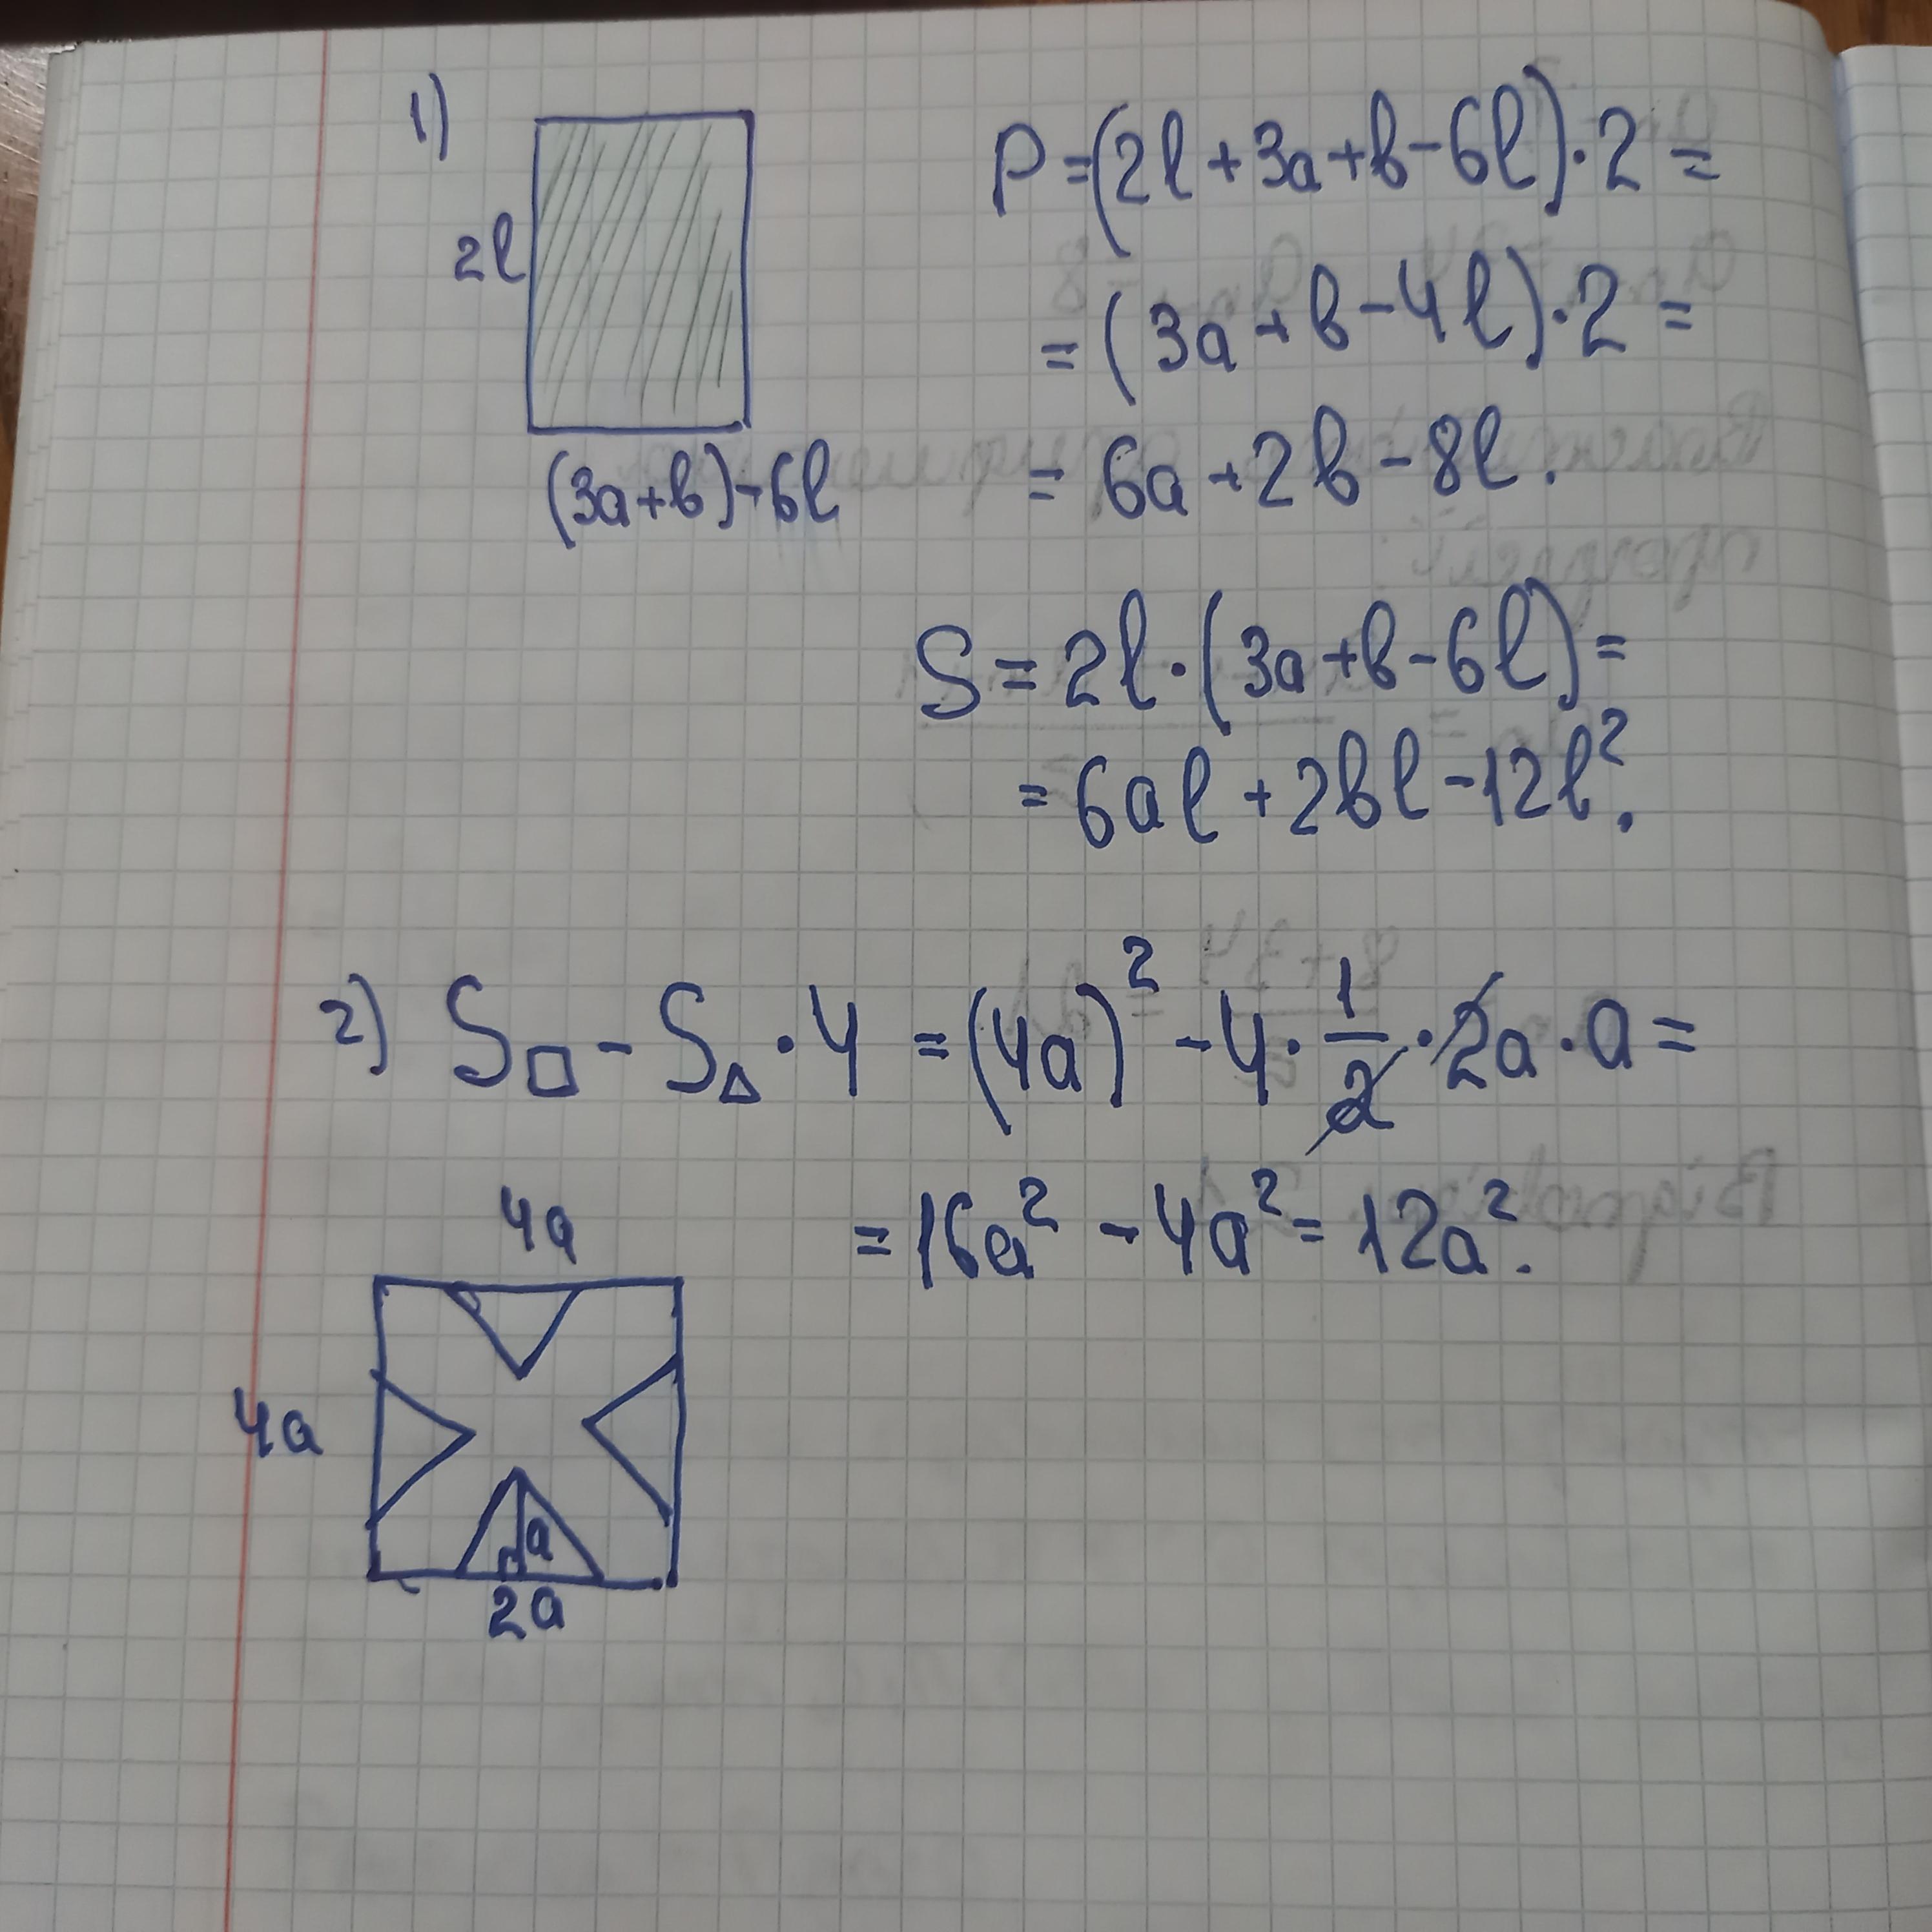 1)
P = (2l + 3a + b - 6l) · 2 =
2l
= (3a + b - 4l) · 2 =
(3a + b) - 6l
= 6a + 2b - 8l.
S = 2l · (3a + b - 6l) =
= 6al + 2bl - 12l².
2) S□ - S△ · 4 = (4a)² - 4 · 1/2 · 2a · a =
= 16a² - 4a² = 12a².
4a
4a
a
2a